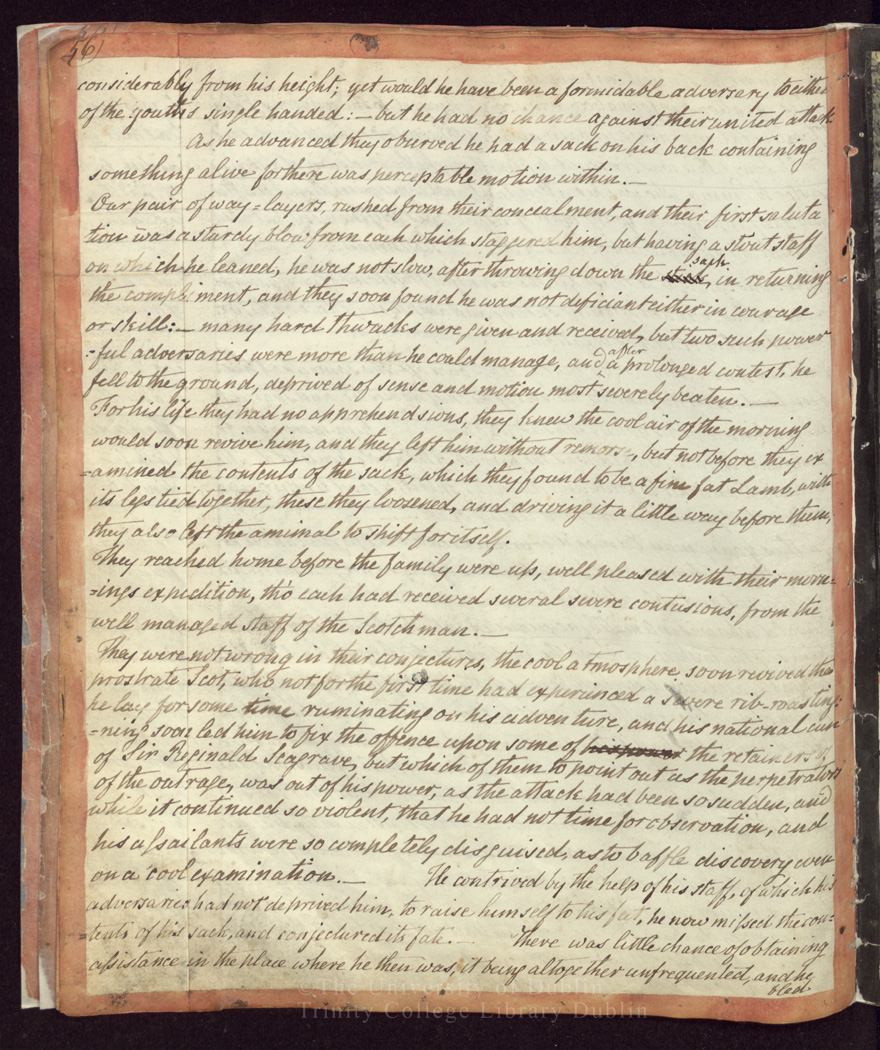 56)
considerably from his height; yet would he have been a formidable adversary to either
of the youths single handed: – but he had no chance against their united attack
As he advanced they observed he had a sack on his back containing
something alive for there was perceptable motion within. –
Our pair of way=layers, rushed from their concealment, and their first saluta
tion was a sturdy blow from each which staggered him, but having a stout staff
on which he leaned, he was not slow, after throwing down the sack, in returning
the compliment, and they soon found he was not deficiant either in courage
or skill: – many hard thwacks were given and received, but two such power
=ful adversaries were more than he could manage, and after a prolonged contest, he
fell to the ground, deprived of sense and motion most severely beaten. –
For his life they had no apprehendsions, they knew the cool air of the morning
would soon revive him, and they left him without remorse, but not before they ex
=amined the contents of the sack, which they found to be a fine fat Lamb, with
its legs tied together, these they loosened, and driving it a little way before them,
they also left the amimal to shift for itself.
They reached home before the family were up, well pleased with their morn=
=ings expedition, tho each had received several severe contusions, from the
well managed staff of the Scotchman. –
They were not wrong in their conjectures, the cool atmosphere soon revived the
prostrate Scot, who not for the first time had experienced a severe rib-roasting:
he lay for some time ruminating on his adventure, and his national cun
=ning soon led him to fix the offence upon some of the retainers
of Sir Reginald Seagrave, but which of them to point out as the perpetrators
of the outrage, was out of his power, as the attack had been so sudden, and
while it continued so violent, that he had not time for observation, and
his assailants were so completely disguised, as to baffle discovery even
on a cool examination. – He contrived by the help of his staff, of which his
adversaries had not deprived him, to raise himself to his feet, he now missed the con=
=tents of his sack, and conjectured its fate. – There was little chance of obtaining
assistance in the place where he then was, it being altogether unfrequented, and he
bled
Trinity College Library Dublin